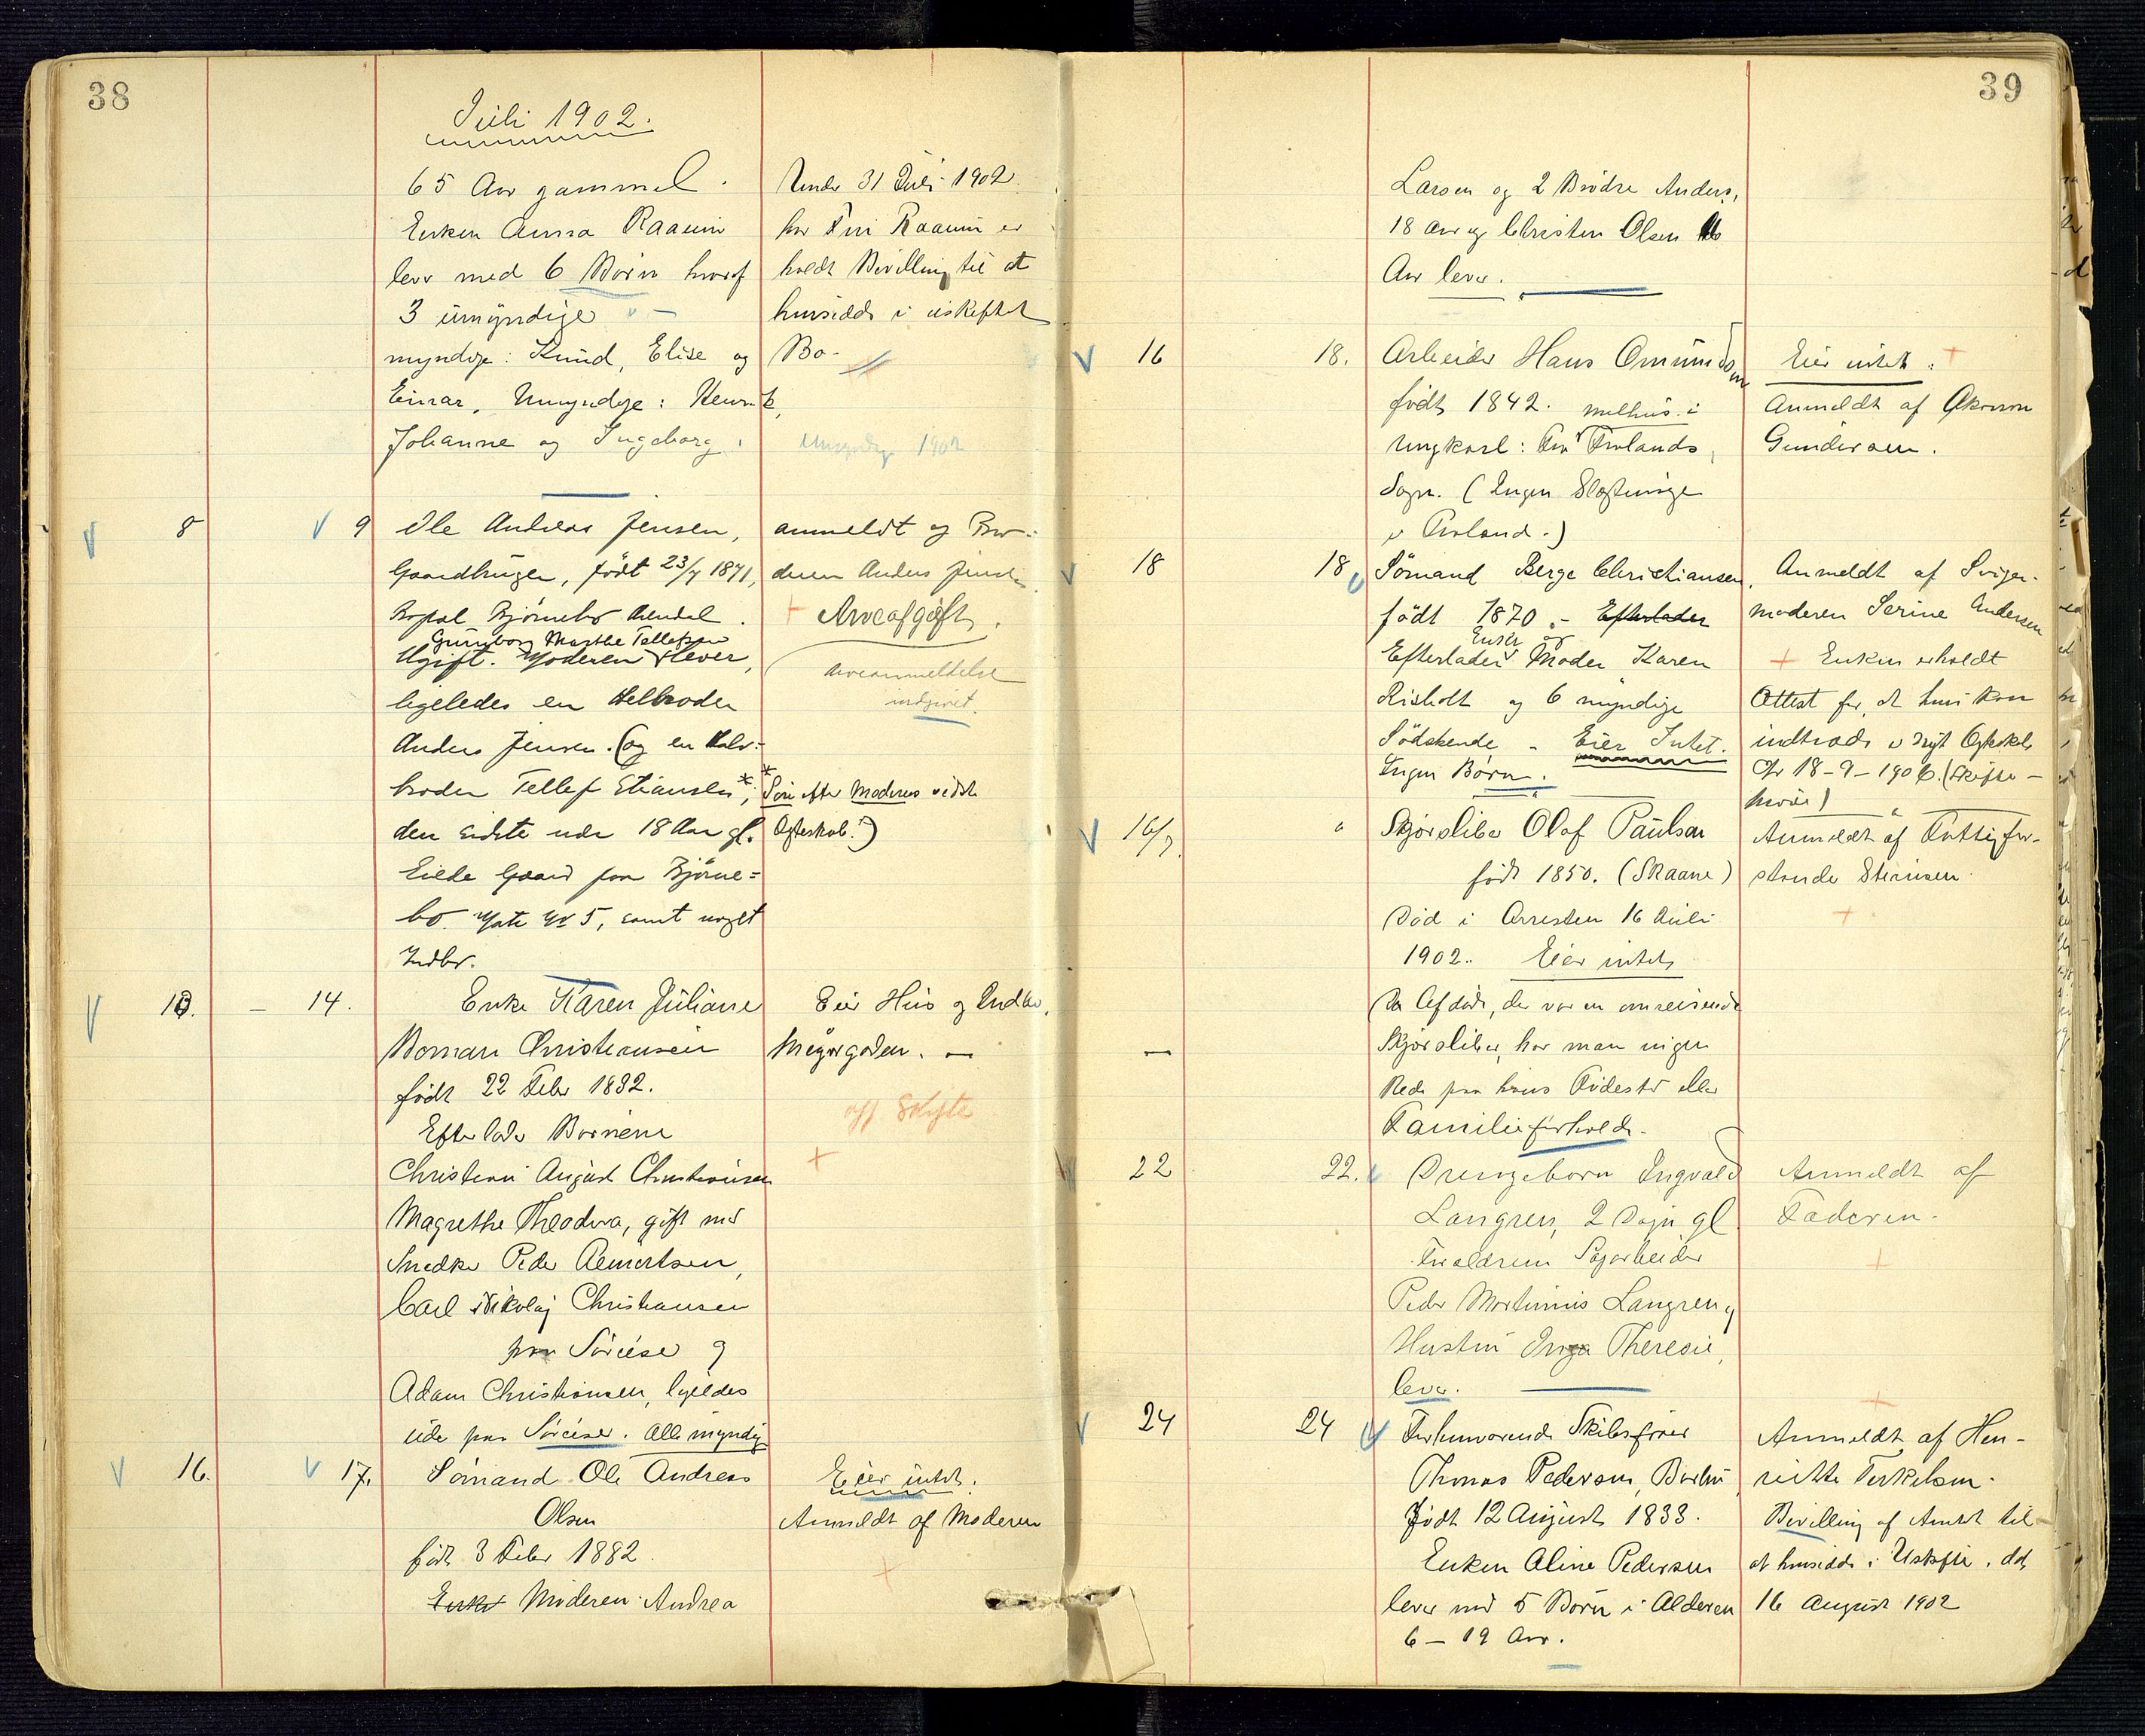 38
Juli 1902.
65 Aar gammel.
Enken Anna Raaum
lever med 6 Børn hvoraf
3 umyndige
myndige: Knud, Elise og
Einar, Umyndige: Henrik,
Johanne og Ingeborg.
Under 31 Juli 1902
har Fru Raaum er
holdt Bevilling til at
hensidde i uskiftet
Bo.
Umyndige 1902
8
9
Ole Andreas Jensen,
Gaardbruger, født 23/7 1871,
Bopæl Bjørnebo Arendal.
Gunnborg Marthe Tellefsen
Ugift. Moderen lever,
ligeledes en Helbroder
Anders Jensen. (og en Halv-
broder Tellef Stiansen *,
den sidste under 18 Aar gl.
Eiede Gaard paa Bjørne-
bo. Mate No 5, samt noget
Indbo.
anmeldt of Bro-
deren Anders Jensen
Arveafgift.
Arveanmeldelse
indgivet.
* Søn efter Moderens sidste
Ægteskab.)
13.
— 14.
Enke Karen Juliane
Boman Christiansen
født 22 Febr 1832.
Efterlader Børnene
Christian August Christiansen
Magrethe Theodora, gift med
Snedker Peder
Carl Nikolaj Christiansen
paa Sørejse og
Adam Christiansen, ligeledes
ude paa Sørejse. Alle myndig
Eier Hus og Indbo.
Myggården. —
off. Skifte
16.
17.
Sømand Ole Andreas
Olsen
født 3 Febr 1882.
Enke Moderen Andrea
Eier intet.
Anmeldt af Moderen
39
Larsen og 2 Brødre Anders,
18 Aar og Christen Olsen 16
Aar lever.
16
18.
Arbeider Hans Omundsen
født 1842.
Ungkarl: Fra Frolands
Sogn. (Ingen Slægtninge
i Froland.)
Eier intet.
Anmeldt af
Gundersen.
18
18
Sømand Berge Christiansen,
født 1870. - Efterlader
Enke og
Efterlader Moder Karen
Risholt og 6 myndige
Södskende - Eier Intet.
Ingen Børn.
Anmeldt af Sviger-
moderen Serine Andersen
Enken erholdt
Attest for, at hun kan
indtræde i nyt Ægteskab
Ar 18-9-1906. (skifte-
16/7.
"
Skjærsliber Olof Paulsen
født 1850. (Skaane)
Død i Arresten 16 Juli
1902. Eier intet,
Da Afdøde, der var en omreisende
Skjærsliber, har man ingen
Rede paa hans Fødested eller
Familieforhold.
Anmeldt af Fattigfor-
stander Steinsen.
22
22.
Drengebarn Ingvald
Langren, 2 Dage gl
Forældrene Sagarbeider
Peder Mortinius Langren og
Hustru Inga Theresie,
lever.
Anmeldt af
Faderen.
24
24
Forhenværende Skibsfører
Thomas Pedersen, Barbu
Født 12 August 1833.
Enken Aline Pedersen
lever med 5 Børn i Alderen
6 — 19 Aar.
Anmeldt af Hen-
riette Terkelsen.
Bevilling af Amtet til
at hensidde i Uskifte, dat,
16 August 1902